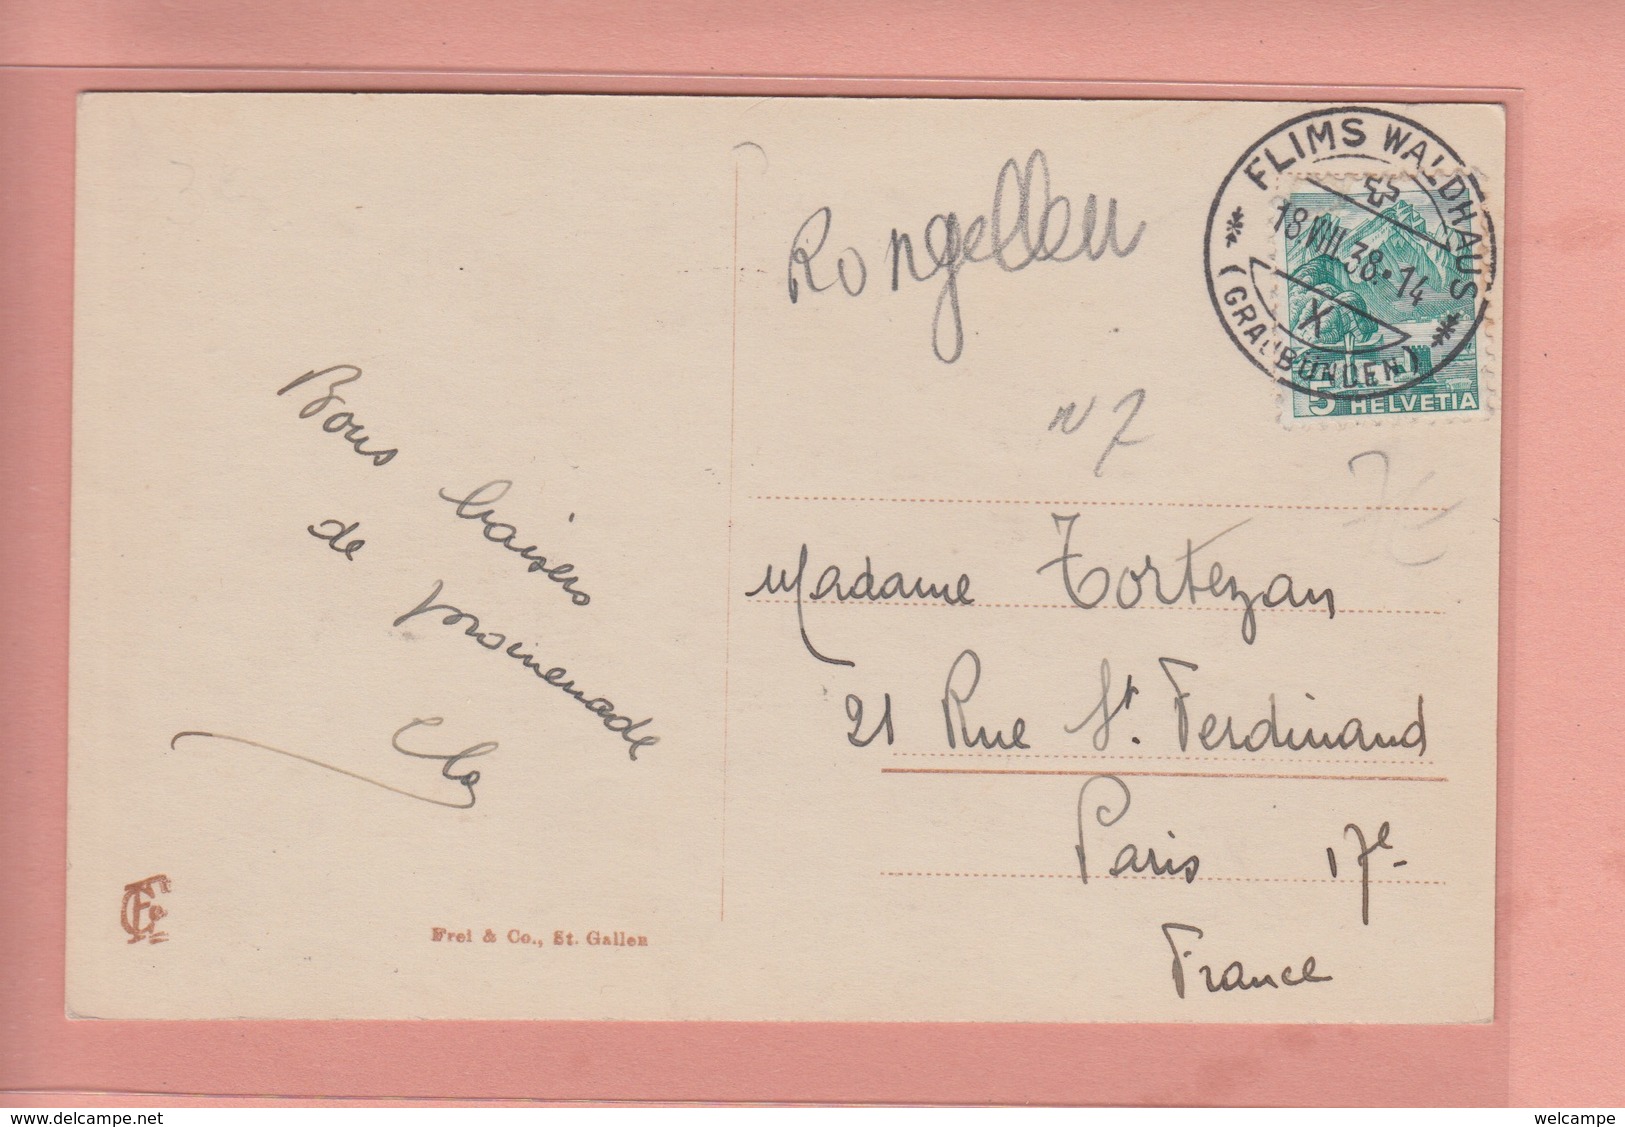 FLIMS WALDHAUS
18.VIII.38.-14
X
(GRAUBÜNDEN)
5 HELVETIA
Rongellen
N 7
7€
Bons baisers
de promenade
Clo
Madame Tortezan
21 Rue St. Ferdinand
Paris 17e
France
Frei & Co., St. Gallen
www.delcampe.net
welcampe